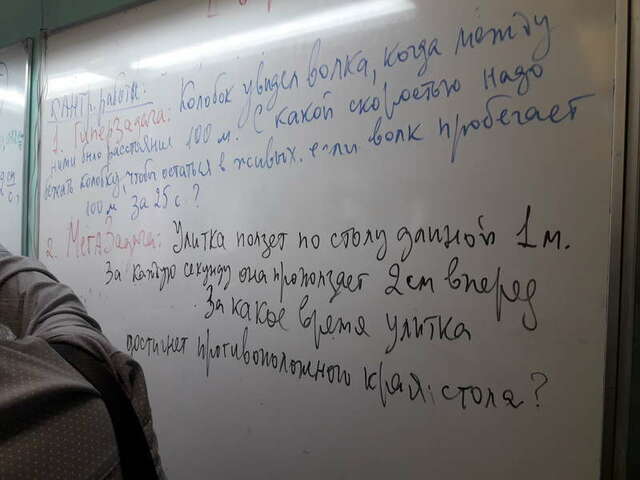 Контр. работы:
1. Гиперзадача: Колобок увидел волка, когда между
ними было расстояние 100 м. С какой скоростью надо
бежать колобку, чтобы остаться в живых, если волк пробегает
100 м за 25 с.?
2. Мегазадача: Улитка ползет по столу длиной 1 м.
За каждую секунду она проползает 2 см вперед
За какое время улитка
достигнет противоположного края стола?